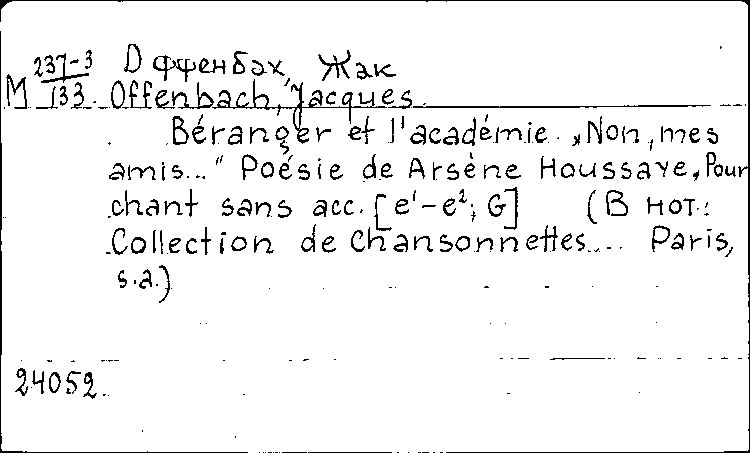 М 237-3/133 Оффенбах, Жак
Offenbach, Jacques.
Béranger et l'académie. „Non, mes
amis..." Poésie de Arsène Houssaye. Pour
chant sans acc. [e¹-e²; G] (В нот.:
Collection de Chansonnettes... Paris,
s.a.)
24052.